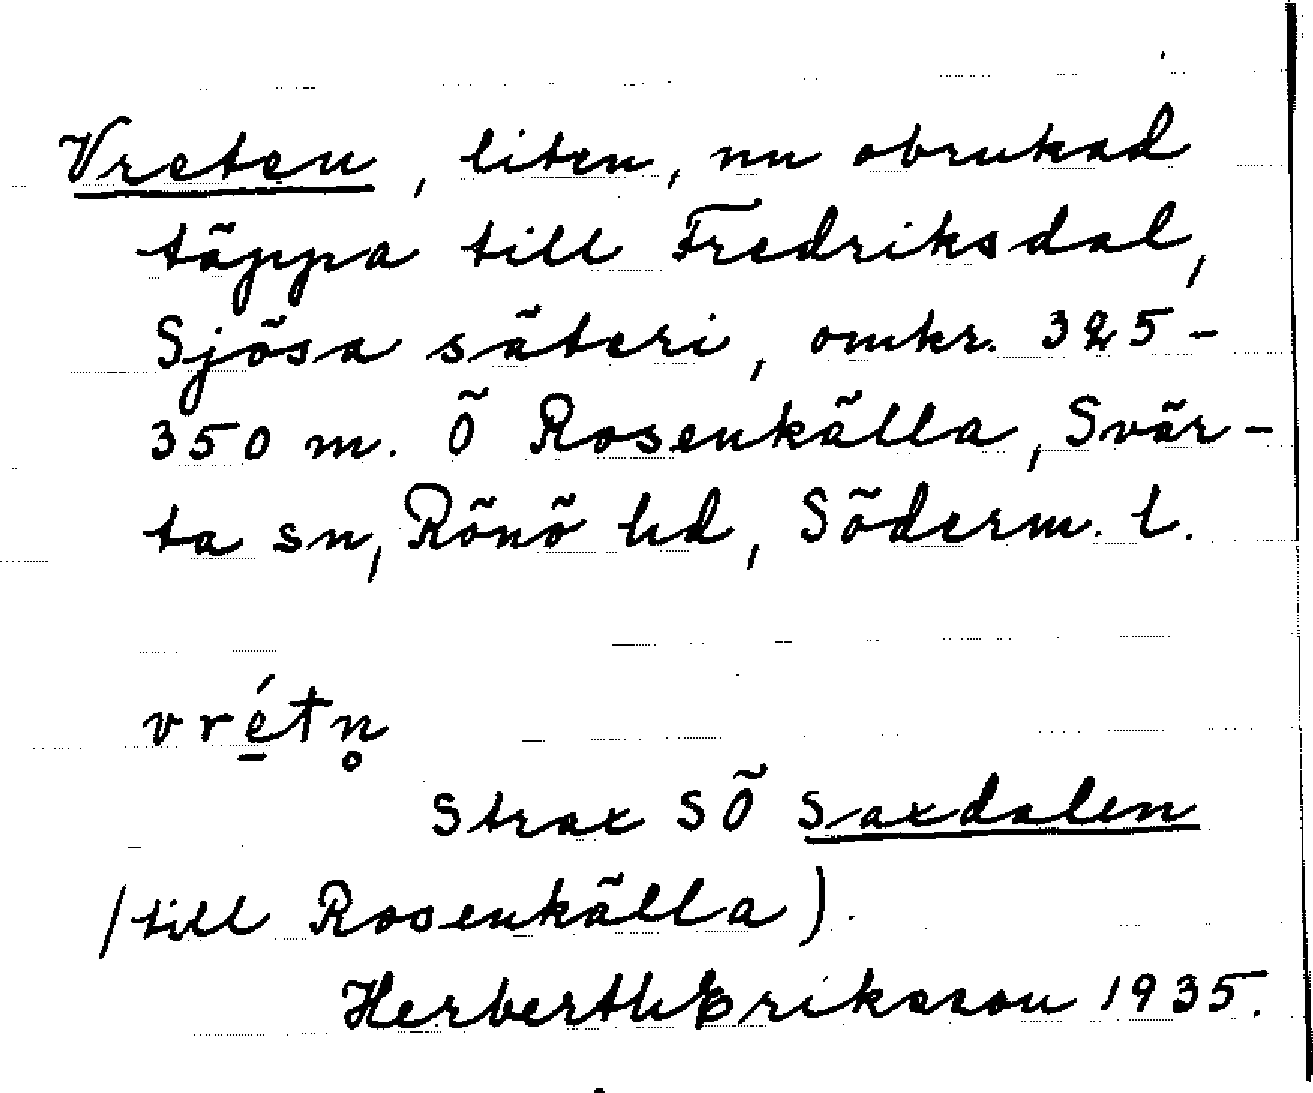 Vreten, liten, nu obrukad
täppa till Fredriksdal,
Sjösa säteri, omkr. 325-
350 m. Ö Rosenkälla, Svär-
ta sn, Rönö hd, Söderm. l.
vré̠tn̥
Strax SÖ Saxdalen
(till Rosenkälla).
Herberth Eriksson 1935.